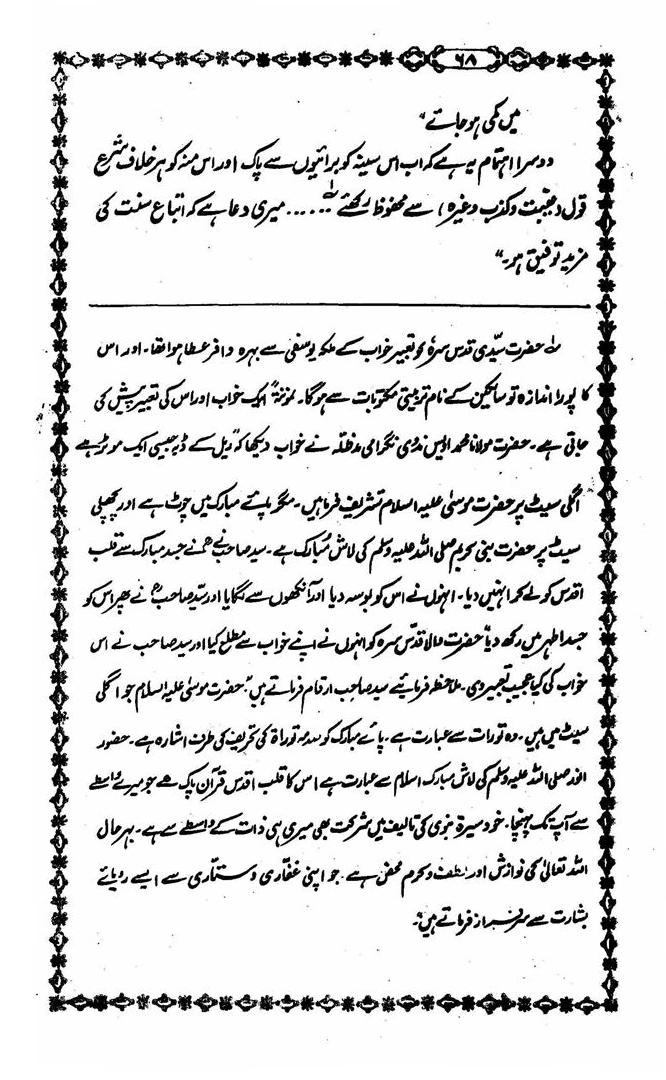 ۶۸
میں کمی ہو جائے"
دوسرا اہتمام یہ ہے کہ اب اس سینہ کو برائیوں سے پاک اور اس منہ کو ہر خلاف شرع
قول (غیبت و کذب وغیرہ) سے محفوظ رکھئے لہ ..... میری دعا ہے کہ اتباع سنت کی
مزید توفیق ہو۔"
لہ حضرت سیدی قدس سرہٗ کو تعبیر خواب کے ملکہ یوسفی سے بہرہ وافر عطا ہوا تھا۔ اور اس
کا پورا اندازہ تو سالکین کے نام تربیتی مکتوبات سے ہوگا۔ نمونۃً ایک خواب اور اس کی تعبیر پیش کی
جاتی ہے۔ حضرت مولانا محمد اویس ندوی نگرامی مدظلہ نے خواب دیکھا کہ "ریل کے ڈبہ جیسی ایک موٹر ہے
اگلی سیٹ پر حضرت موسیٰ علیہ السلام تشریف فرما ہیں۔ مگر پائے مبارک میں چوٹ ہے اور پچھلی
سیٹ پر حضرت نبی کریم صلی اللہ علیہ وسلم کی لاش مبارک ہے۔ سید صاحب نے جسد مبارک سے قلب
اقدس کو لے کر انہیں دیا۔ انہوں نے اس کو بوسہ دیا اور آنکھوں سے لگایا اور سید صاحبؒ نے پھر اس کو
جسد اطہر میں رکھ دیا" حضرت والا قدس سرہ کو انہوں نے اپنے خواب سے مطلع کیا اور سید صاحب نے اس
خواب کی کیا عجیب تعبیر دی۔ ملاحظہ فرمائیے سید صاحب ارقام فرماتے ہیں: "حضرت موسیٰ علیہ السلام جو اگلی
سیٹ میں ہیں۔ وہ تورات سے عبارت ہے۔ پائے مبارک کو صدمہ توراۃ کی تحریف کی طرف اشارہ ہے۔ حضور
انور صلی اللہ علیہ وسلم کی لاش مبارک اسلام سے عبارت ہے اس کا قلب اقدس قرآن پاک ہے جو میرے واسطے
سے آپ تک پہنچا۔ خود سیرۃ نبوی کی تالیف میں شرکت بھی میری ہی ذات کے واسطے سے ہے۔ بہرحال
اللہ تعالیٰ کی نوازش اور لطف و کرم محض ہے۔ جو اپنی غفاری و ستاری سے ایسے رویائے
بشارت سے سرفراز فرماتے ہیں"۔